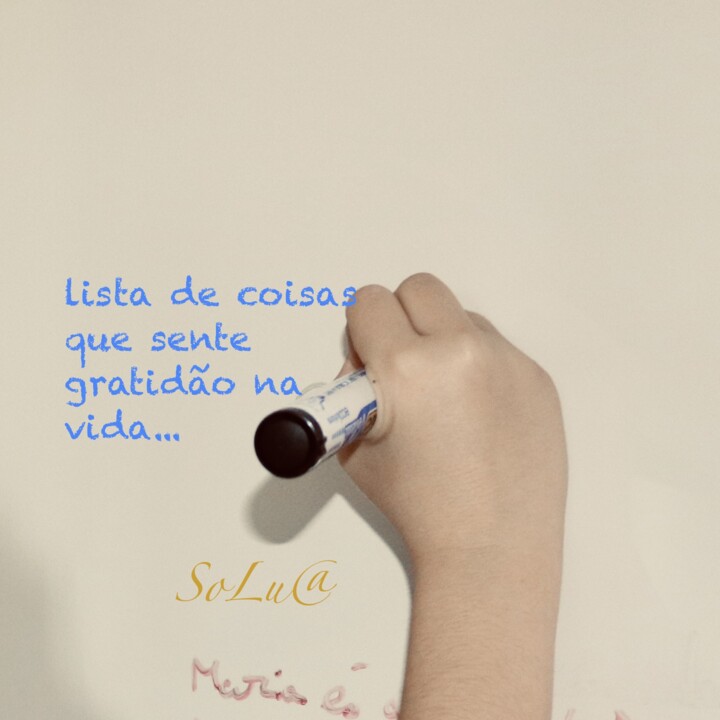 lista de coisas
que sente
gratidão na
vida...
SoLuC@
Maria é